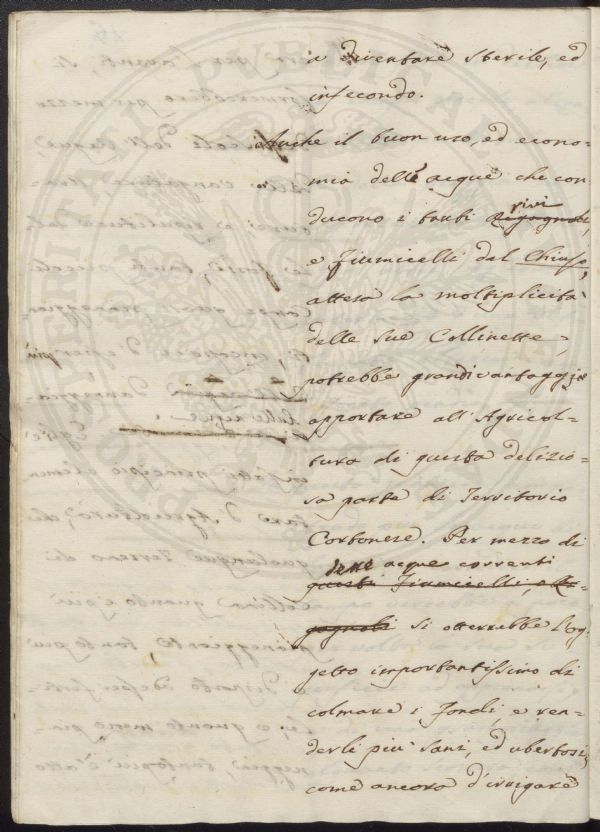 a diventare sterile, ed
infecondo.
Anche il buon uso, ed econo=
mia delle acque che con
ducono i tanti rivi
e Fiumicelli dal Chiuso,
attesa la moltiplicità
delle sue Collinette,
potrebbe grandi vantaggj
apportare all'Agricol=
tura di questa delizio=
sa parte di Territorio
Corbonese. Per mezzo di
dette acque correnti
questi Fiumicelli, o Ri=
gagnoli si otterrebbe l'og
getto importantissimo di
colmare i fondi, e ren=
derli più sani, ed ubertosi,
come ancora d'irrigare